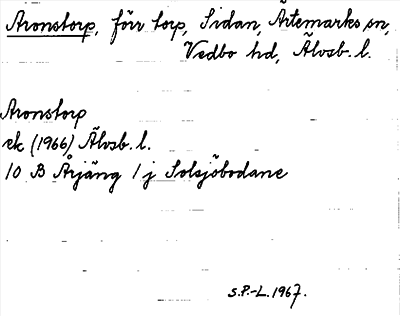 Aronstorp, förr torp, Sidan, Ärtemarks sn,
Vedbo hd, Älvsb. l.
Aronstorp
ek (1966) Älvsb. l.
10 B Årjäng 1 j Solsjöbodane
S.P.-L. 1967.